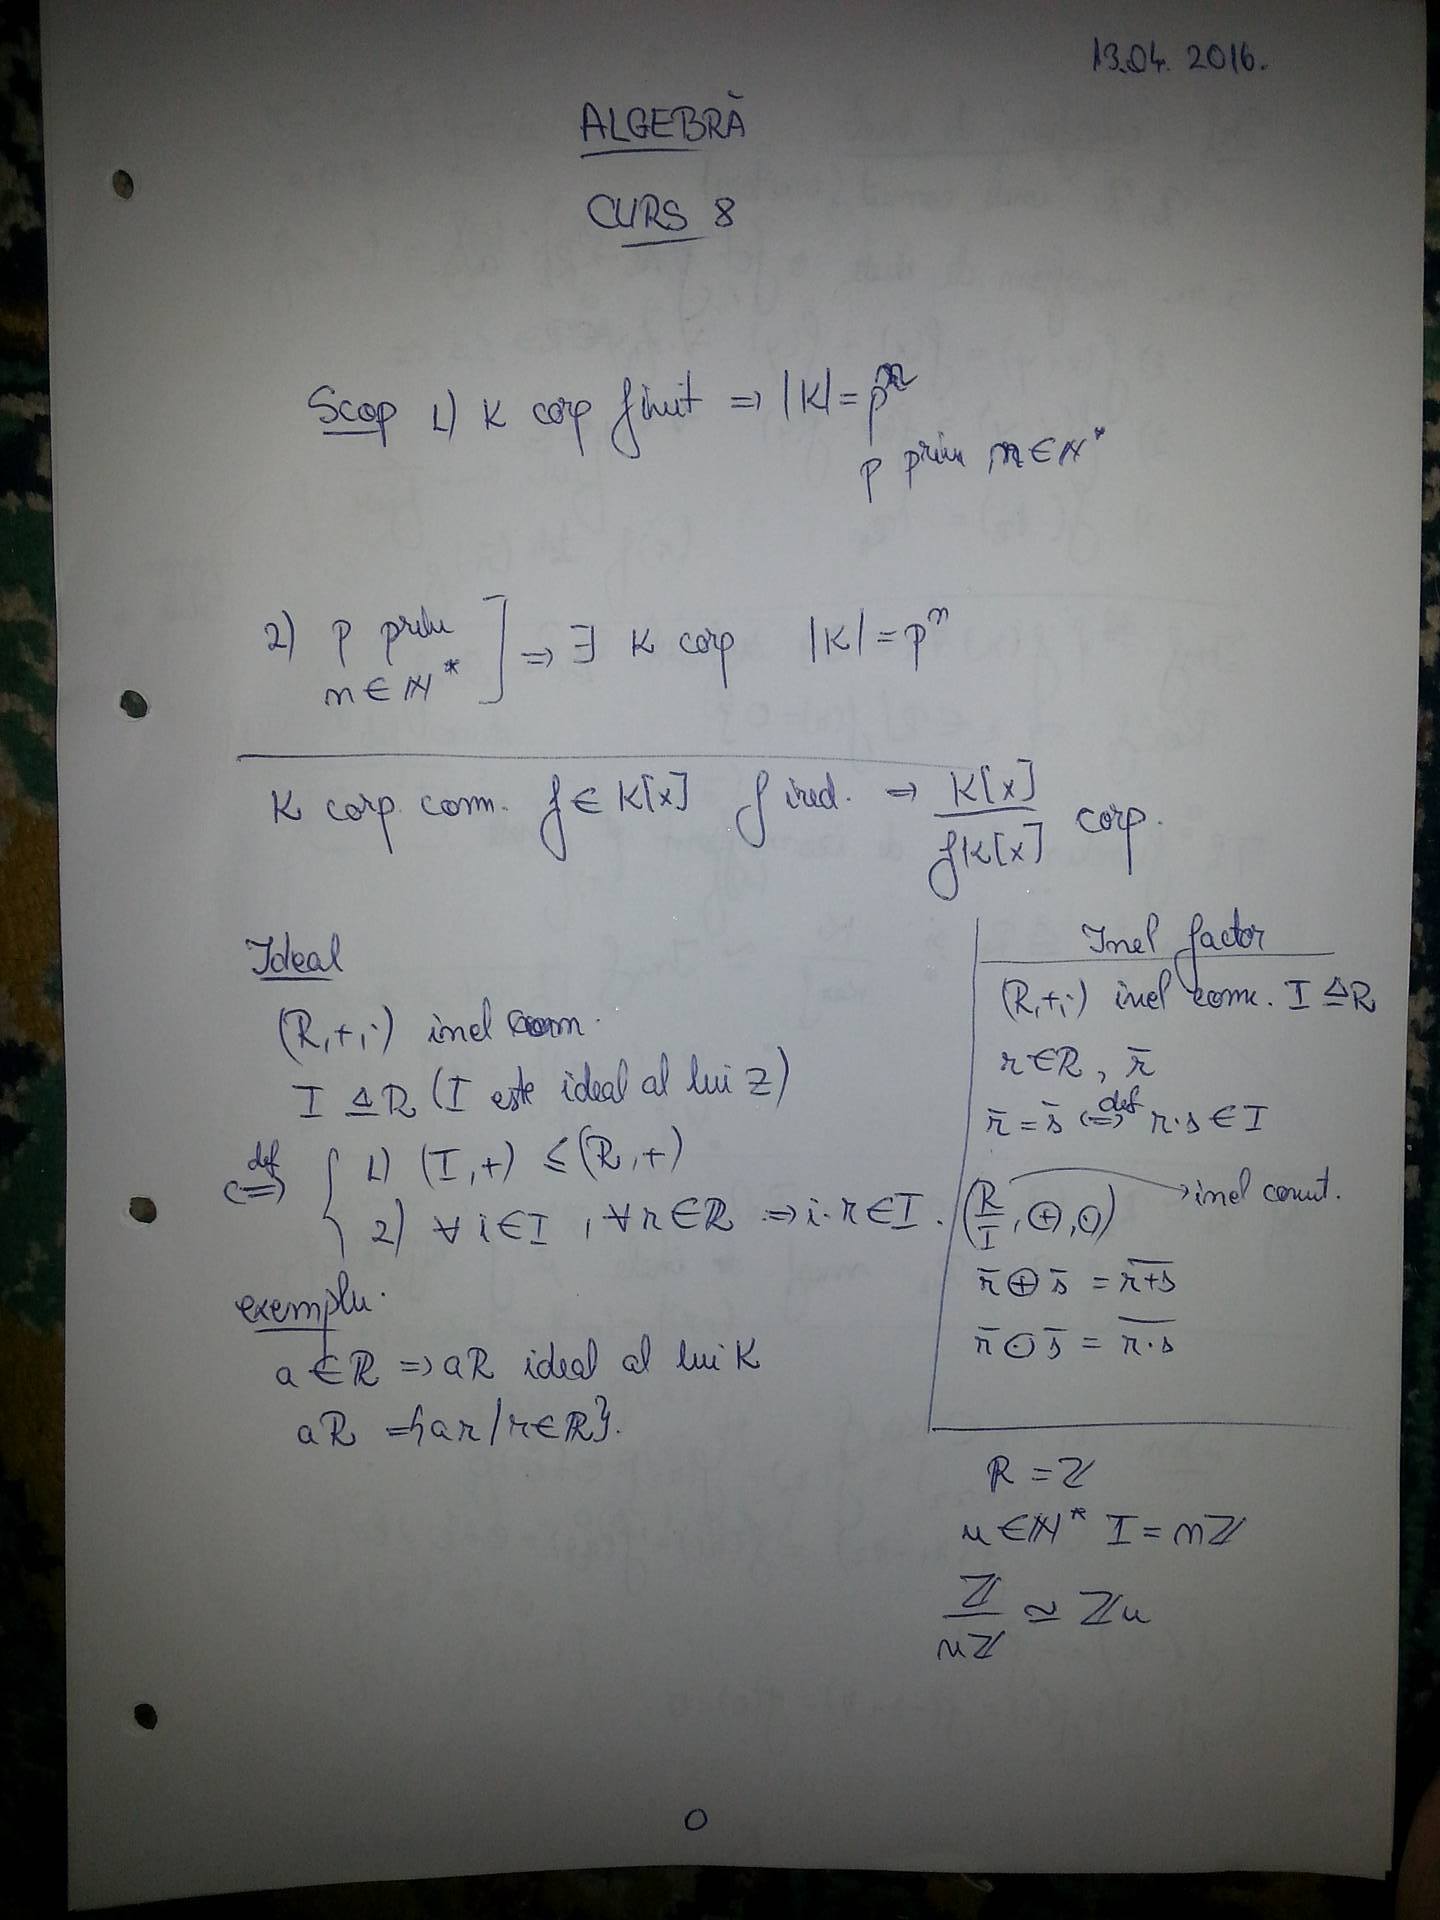 13.04. 2016.
ALGEBRĂ
CURS 8
Scop 1) K corp finit => |K| = pⁿ
p prim n ∈ ℕ*
2) p prim
n ∈ ℕ* ] => ∃ K corp |K| = pⁿ
K corp com. f ∈ K[x] f ired. => K[x] / fK[x] corp.
Ideal
(R,+,·) inel com.
I ⊴ R (I este ideal al lui Z)
<=>def { 1) (I,+) ≤ (R,+)
2) ∀ i ∈ I, ∀ r ∈ R => i·r ∈ I.
exemplu.
a ∈ R => aR ideal al lui K
aR = {ar / r ∈ R}.
Inel factor
(R,+,·) inel com. I ⊴ R
r ∈ R, r̄
r̄ = s̄ <=>def r·s ∈ I
(R/I, ⊕, ⊙) → inel comut.
r̄ ⊕ s̄ = r̅+̅s̅
r̄ ⊙ s̄ = r̅·̅s̅
R = ℤ
n ∈ ℕ* I = nℤ
ℤ/nℤ ≃ ℤn
0